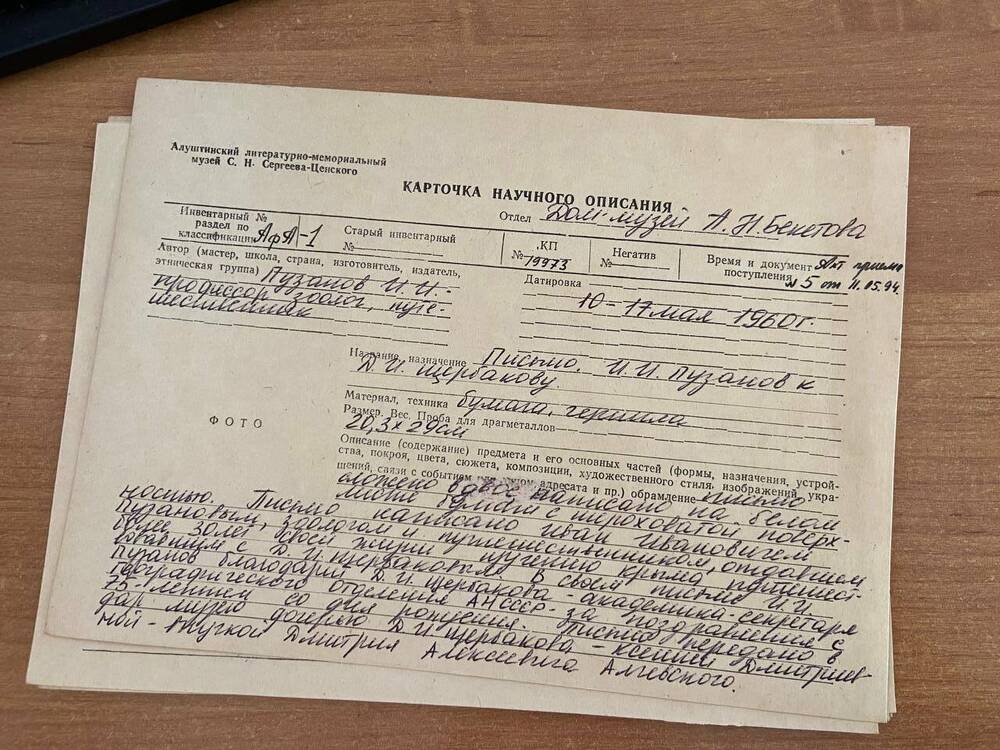 Алуштинский литературно-мемориальный
музей С. Н. Сергеева-Ценского
КАРТОЧКА НАУЧНОГО ОПИСАНИЯ
Отдел Дом-музей А.Н.Бекетова
Инвентарный №
раздел по
классификации АфА-1
Старый инвентарный
№
КП
№ 19973
Негатив
№
Время и документ Акт приема
поступления № 5 от 11.05.94
Автор (мастер, школа, страна, изготовитель, издатель,
этническая группа) Пузанов И.И. -
профессор, зоолог, путе-
шественник
Датировка
10-17 мая 1960г.
Название, назначение Письмо. И.И. Пузанов к
Д.И. Щербакову.
Материал, техника бумага, чернила
Размер. Вес. Проба для драгметаллов
20,3х29см
ФОТО
Описание (содержание) предмета и его основных частей (формы, назначения, устрой-
ства, покроя, цвета, сюжета, композиции, художественного стиля, изображений, укра-
шений, связи с событием адресата и пр.) обрамление письмо
сложено вдвое написано на белом
листе бумаги с шероховатой поверх-
ностью. Письмо написано Иван Ивановичем
Пузановым, зоологом и путешественником, отдавшем
более 50 лет своей жизни изучению Крыма, путешест-
вовавшим с Д.И. Щербаковым. В своем письме И.И.
Пузанов благодарит Д.И. Щербакова - академика-секретаря
географического отделения АН СССР - за поздравления с
75-летием со дня рождения. Письмо передано в
дар музею дочерью Д.И. Щербакова - Ксенией Дмитриев-
ной - внучкой Дмитрия Алексеевича Алчевского.